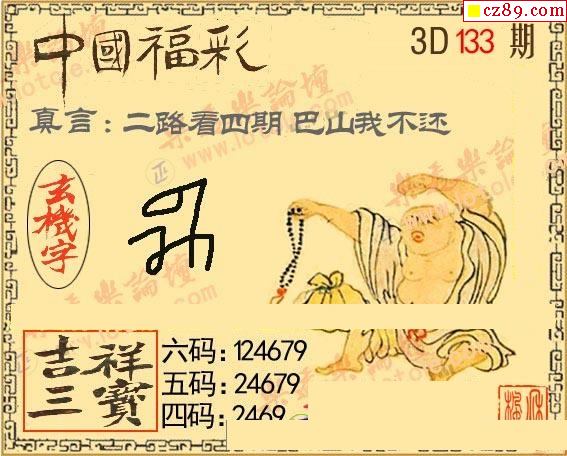 cz89.com
中國福彩
3D 133 期
真言：二路看四期 巴山我不还
玄機字
吉祥三寶
六码：124679
五码：24679
四码：2469
樂樂論壇
www.lotole.com